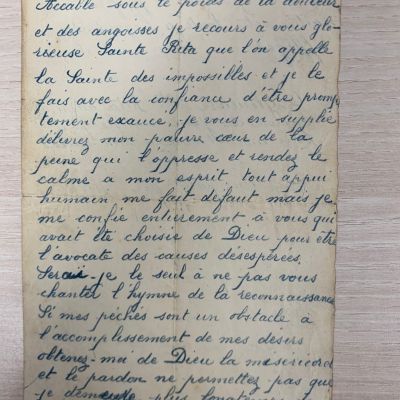 Accablé sous le poids de la douleur
et des angoisses je recours à vous glo-
rieuse Sainte Rita que l'on appelle
la Sainte des impossibles et je le
fais avec la confiance d'être promp
tement exaucé, je vous en supplie
délivrez mon pauvre cœur de la
peine qui l'oppresse et rendez le
calme a mon esprit tout appui
humain me fait défaut mais je
me confie entièrement à vous qui
avait été choisie de Dieu pour être
l'avocate des causes désespérées.
Serai-je le seul à ne pas vous
chanter l'hymne de la reconnaissance
Si mes péchés sont un obstacle à
l'accomplissement de mes désirs
obtenez-moi de Dieu la miséricord
et le pardon ne permettez pas que
je demeure plus longtemps